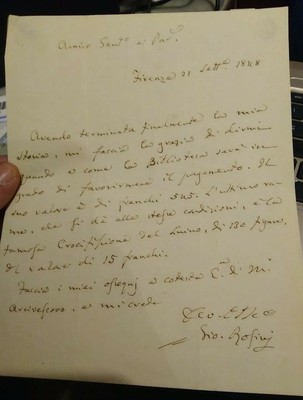 Amico Sing.º e Pad.e
Firenze 21 Sett.e 1848
Avendo terminata finalmente la mia
storia, mi faccia la grazia di dirmi
quando e come la Biblioteca sarà in
grado di favorirmene il pagamento. Il
suo valore è di franchi 545. L'ultimo ra-
me, che si dà alle stesse condizioni, è la
famosa Crocifissione del Luino, di 130 figure,
del valor di 15 franchi.
Faccia i miei ossequj a cotesto
Arcivescovo, e mi creda
Gio. Rosinj